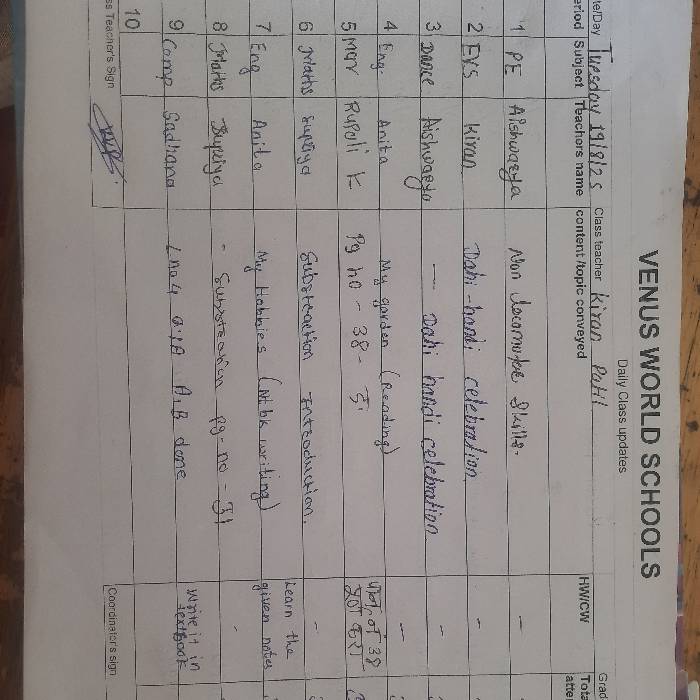 VENUS WORLD SCHOOLS
Daily Class updates
te/Day Tuesday 19/8/25 Class teacher Kiran Patil Grad
eriod Subject Teachers name content/topic conveyed HW/CW Tota
atte
1 PE Aishwarya Non locomotor Skills. -
2 EVS Kiran Dahi-handi celebration -
3 Dance Aishwarya - Dahi handi celebration -
4 Eng. Anita My garden (Reading) -
5 Mar Rupali K Pg no - 38 - 38
6 Maths Supriya Substraction Introduction. -
7 Eng Anita My Hobbies (Nt.bk writing) Learn the
given notes
8 Maths Supriya - Substraction pg-no-31 -
9 Comp Sadhana Lno 4 Q:A A,B done Write it in
textbook
10
ss Teacher's Sign Coordinator's sign